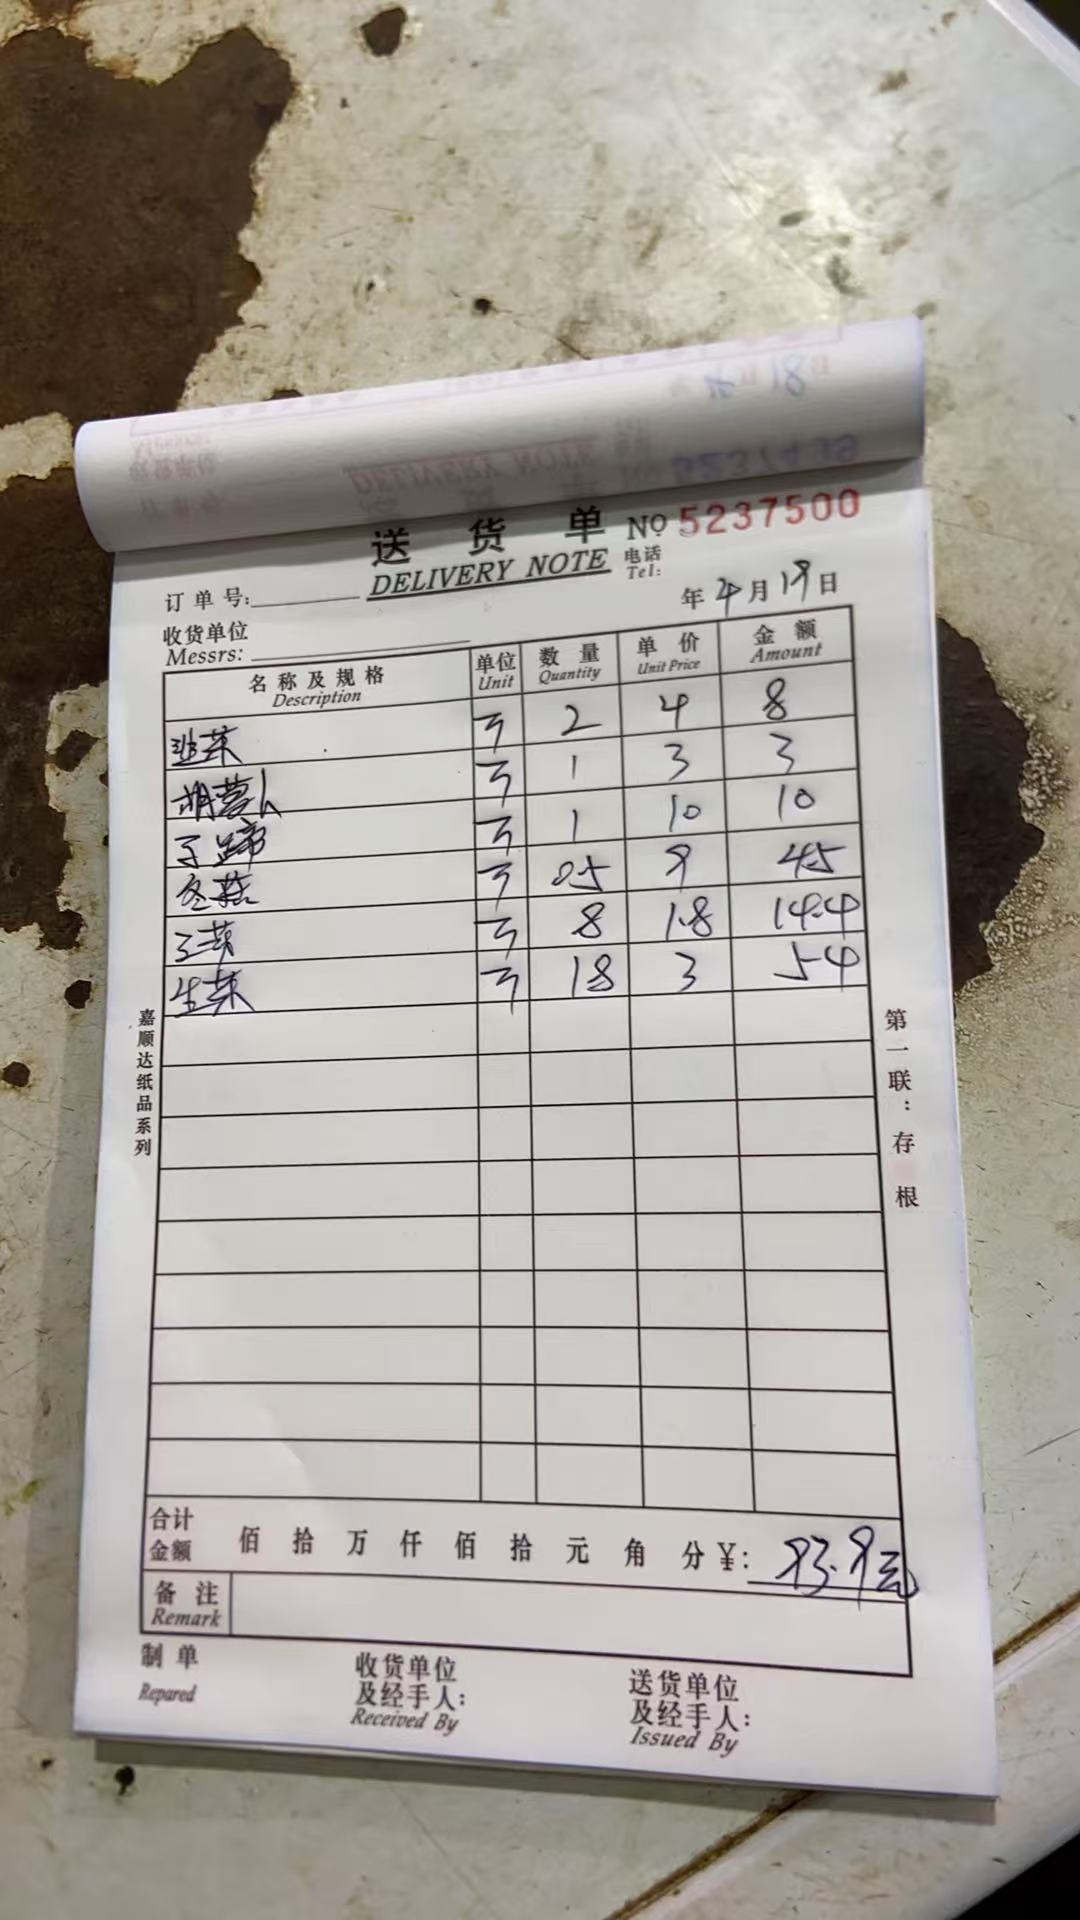 送货单 No 5237500
DELIVERY NOTE 电话
Tel:
订单号: 年 4月 19日
收货单位
Messrs:
名称及规格 单位 数量 单价 金额
Description Unit Quantity Unit Price Amount
韭菜 斤 2 4 8
胡萝卜 斤 1 3 3
马蹄 斤 1 10 10
冬菇 斤 0.5 9 4.5
菜 斤 8 1.8 14.4
生菜 斤 18 3 54
嘉顺达纸品系列
第一联:存根
合计
金额 佰 拾 万 仟 佰 拾 元 角 分 ¥: 93.9元
备注
Remark
制单 收货单位 送货单位
及经手人: 及经手人:
Repared Received By Issued By